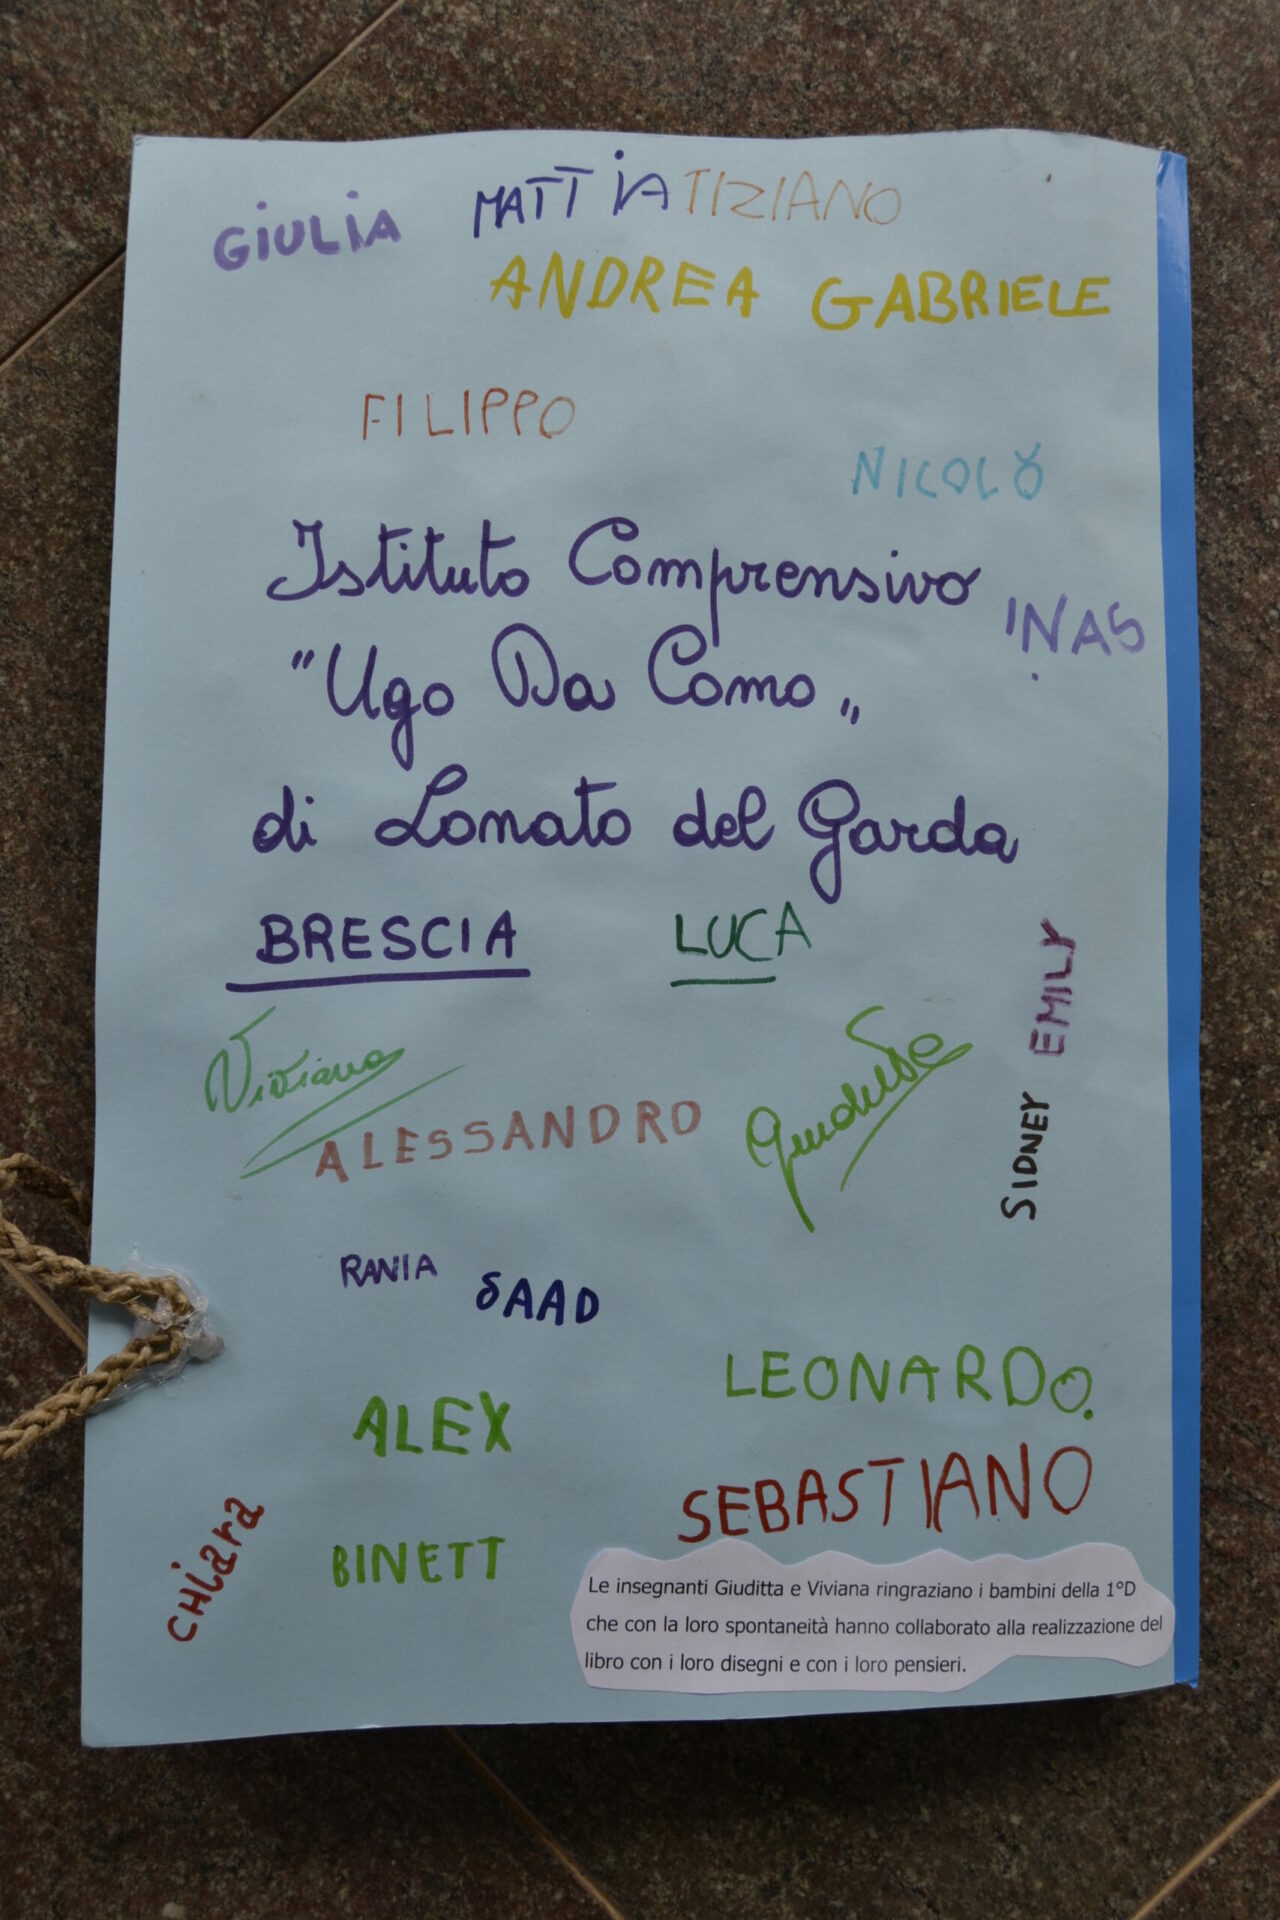 GiULiA MATTiA TIZIANO
ANDREA GABRIELE
FILIPPO
NICOLÒ
Istituto Comprensivo
INAS
"Ugo Da Como"
di Lonato del Garda
BRESCIA LUCA
EMILY
Viviana
Giuditta
ALESSANDRO
SIDNEY
RANIA SAAD
LEONARDO.
ALEX
SEBASTIANO
CHiara
BINETT
Le insegnanti Giuditta e Viviana ringraziano i bambini della 1°D
che con la loro spontaneità hanno collaborato alla realizzazione del
libro con i loro disegni e con i loro pensieri.